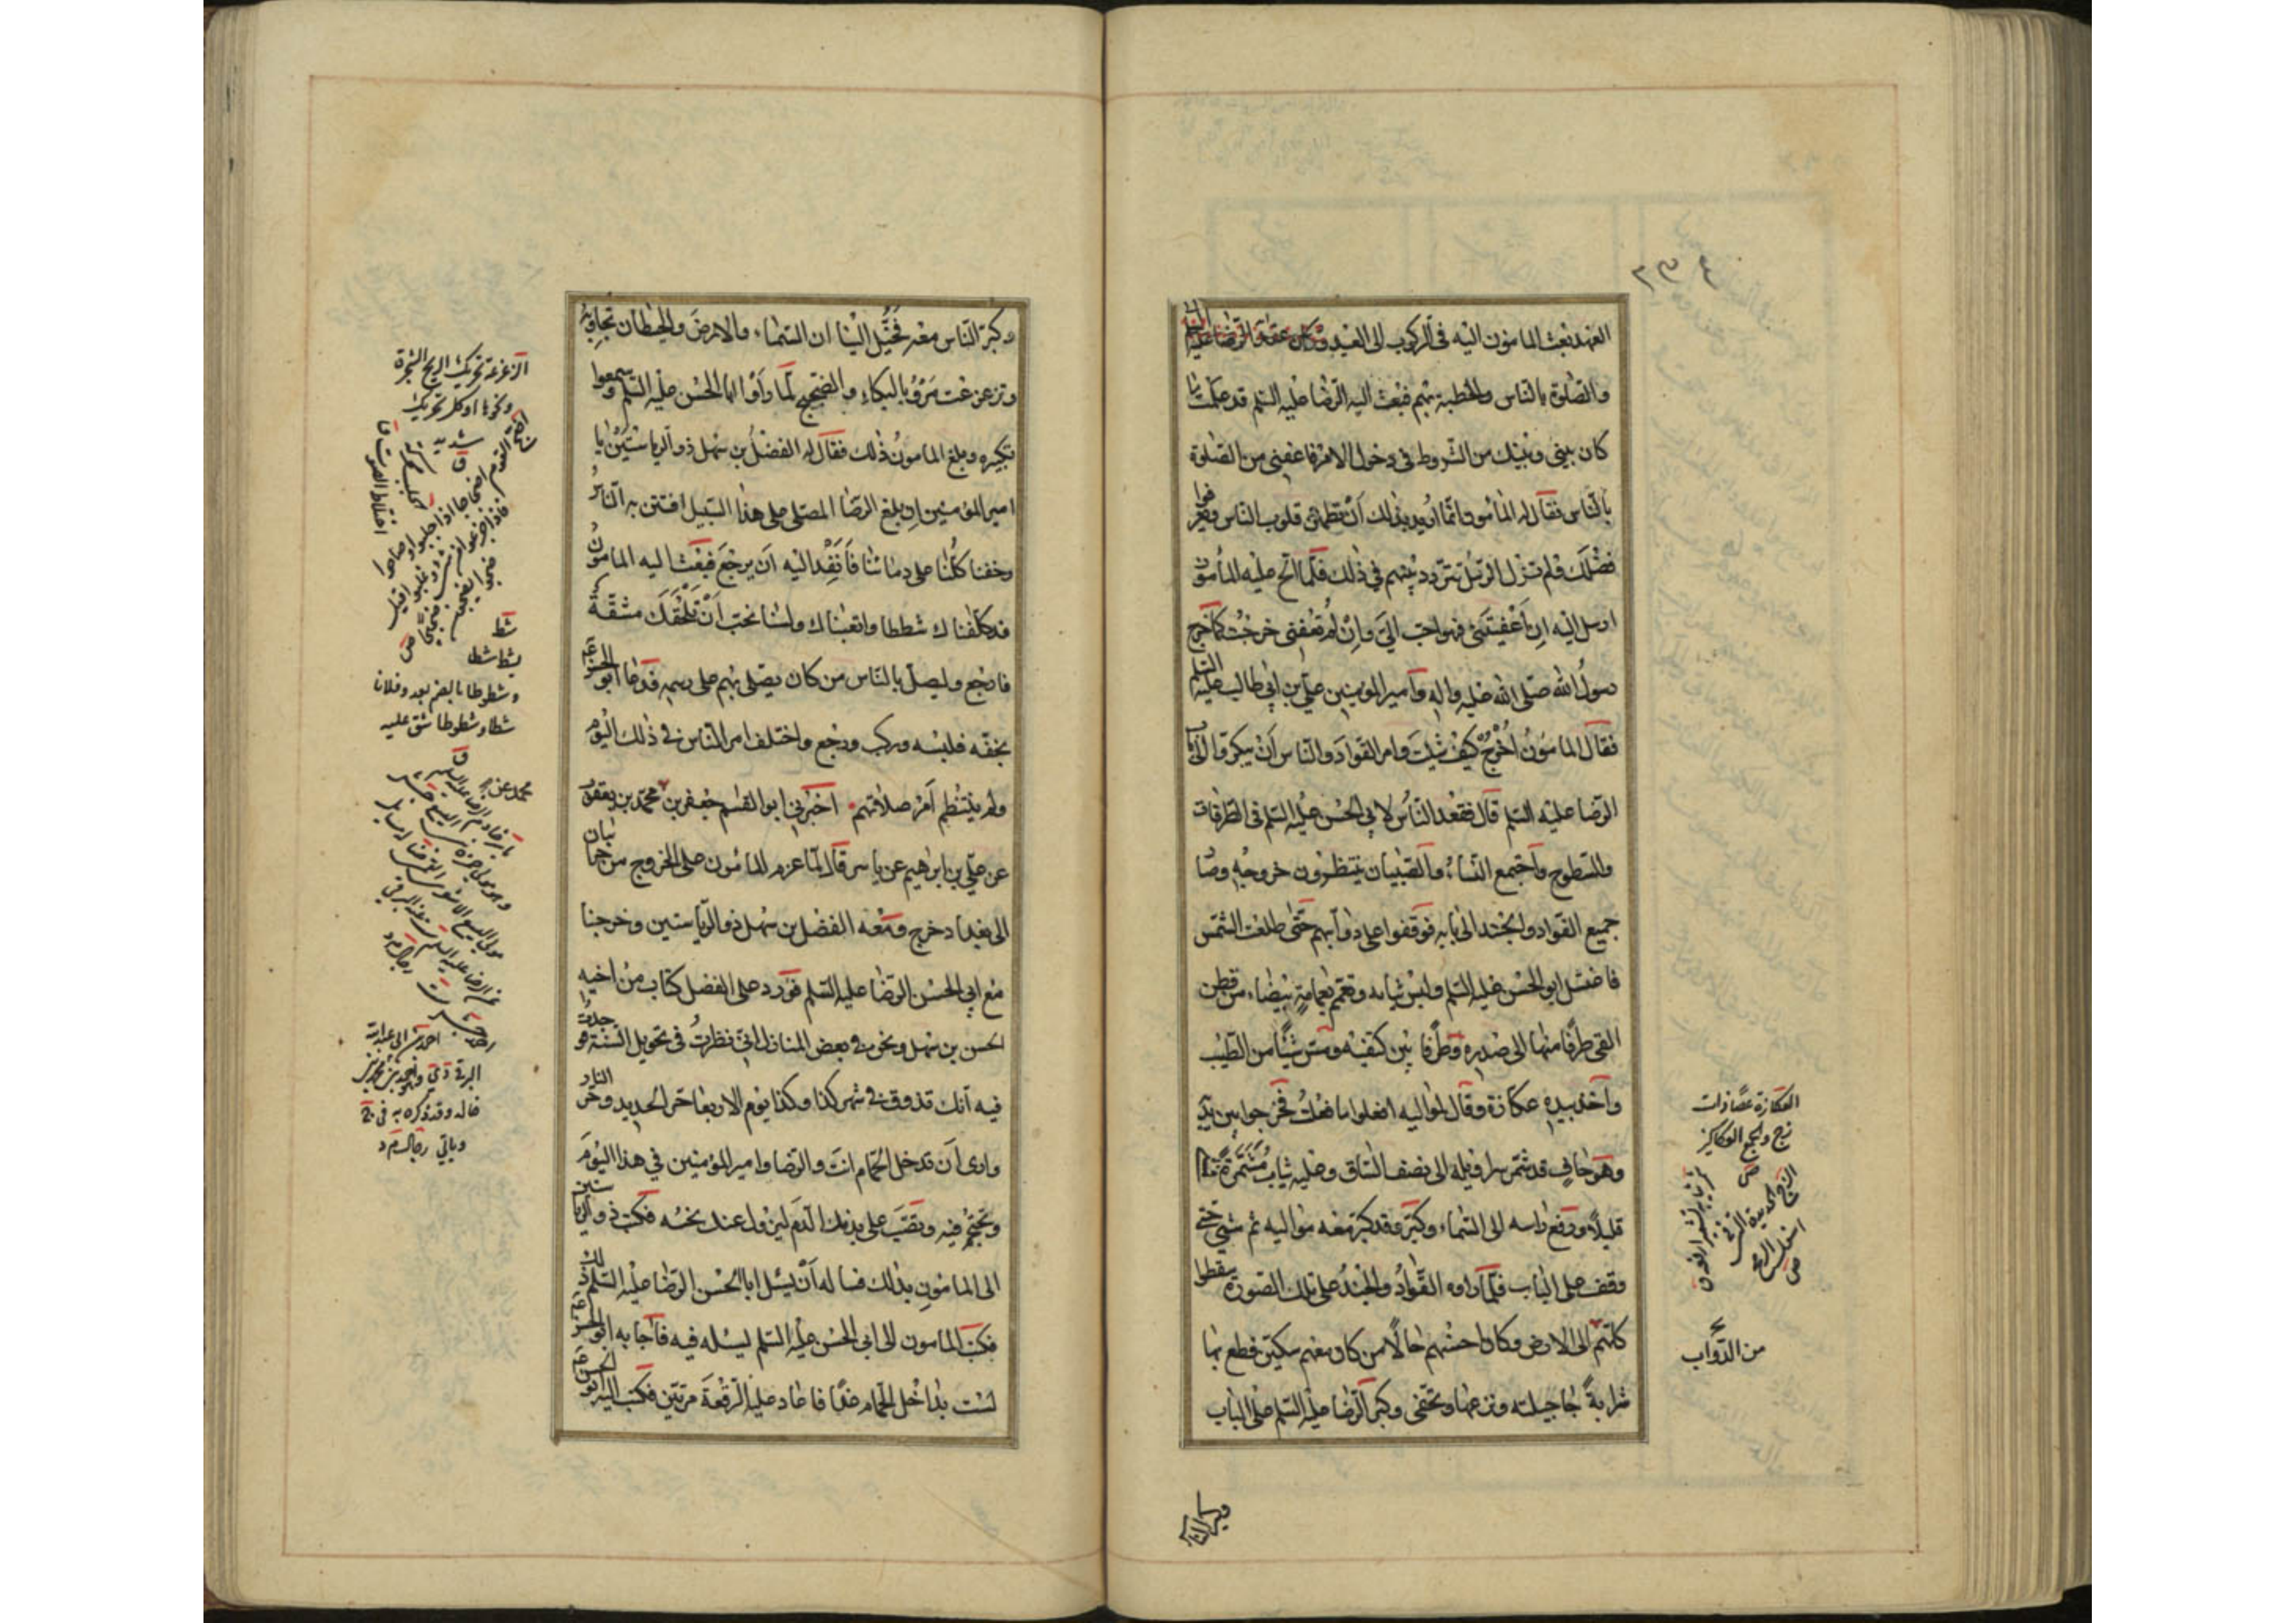 ٢٣٤
العهد بعث المامون اليه فى الركوب الى العيد
والصلوة بالناس والخطبة بهم فبعث اليه الرضا عليه السلم قد علمت ما
كان بينى وبينك من الشروط فى دخول الامر فاعفنى من الصلوة
بالناس فقال له المأمون انما اريد بذلك أن تطمئن قلوب الناس ويعرفوا
فضلك فلم تزل الرسل تتردد بينهم في ذلك فلما الح عليه المأمون
ارسل اليه ان أعفيتنى فهو احب الي وان لم تعفنى خرجت كما خرج
رسول الله صلى الله عليه واله وأمير المؤمنين علي بن ابي طالب عليه السلم
فقال المامون أخرج كيف شئت وامر القواد والناس أن يبكروا الى باب
الرضا عليه السلم قال فقعد الناس لابي الحسن عليه السلم فى الطرقات
والسطوح واجتمع النساء والصبيان ينتظرون خروجه وصار
جميع القواد والجند الى بابه فوقفوا على دوابهم حتى طلعت الشمس
فاغتسل ابو الحسن عليه السلم ولبس ثيابه وتعمم بعمامة بيضاء من قطن
القى طرفا منها الى صدره وطرفا بين كتفيه ومس شيئا من الطيب
وأخذ بيده عكازة وقال لمواليه افعلوا ما فعلت فخرجوا بين يديه
وهو حاف قد شمر سراويله الى نصف الساق وعليه ثياب مشمرة
قليلا ورفع راسه الى السماء وكبر وقد كبر معه مواليه ثم مشى حتى
وقف على الباب فلما راوه القواد والجند على تلك الصورة سقطوا
كلهم الى الارض وكان احسنهم حالا من كان معهم سكين قطع بها
شرابة جاجيلته ونزعها وتحفى وكبر الرضا عليه السلم على الباب
العكازة عصا ذات
زج والجمع العكاكيز
ص
الزج الحديدة التي فى
اسفل الرمح
ص
من الدواب
وكبر الناس
وكبر الناس معه فخيل الينا ان السماء والارض والحيطان تجاوبه
وتزعزعت مرو بالبكاء والضجيج لما رأوا ابا الحسن عليه السلم وسمعوا
تكبيره وبلغ المامون ذلك فقال له الفضل بن سهل ذو الرياستين يا
امير المؤمنين ان بلغ الرضا المصلى على هذا السبيل افتتن به الناس
وخفنا كلنا على دمائنا فأنفذ اليه أن يرجع فبعث اليه المامون
قد كلفناك شططا واتعبناك ولسنا نحب أن تلحقك مشقة
فارجع وليصل بالناس من كان يصلى بهم على رسمه فدعا ابو الحسن
بخفه فلبسه وركب ورجع واختلف امر الناس في ذلك اليوم
ولم ينتظم أمر صلاتهم اخبرني ابو القاسم جعفر بن محمد بن يعقوب
عن علي بن ابرهيم عن ياسر قال لما عزم المأمون على الخروج من خراسان
الى بغداد خرج ومعه الفضل بن سهل ذو الرياستين وخرجنا
مع ابي الحسن الرضا عليه السلم فورد على الفضل كتاب من اخيه
الحسن بن سهل ونحن في بعض المنازل اني نظرت فى تحويل السنة فوجدت
فيه انك تذوق في شهر كذا وكذا يوم الاربعا حر الحديد وحر النار
وارى أن تدخل الحمام انت والرضا وامير المؤمنين في هذا اليوم
وتحتجم فيه وتصب على بدنك الدم ليزول عنك نحسه فكتب ذو الرياستين
الى المامون بذلك فساله أن يسئل ابا الحسن الرضا عليه السلم ذلك
فكتب المامون الى ابي الحسن عليه السلم يسئله فيه فأجابه ابو الحسن
لست بداخل الحمام غدا فاعاد عليه الرقعة مرتين فكتب اليه ابو الحسن
الزعزعة تحريك الريح الشجرة
ونحوها او كل تحريك
شديد
ق
شط
يشط شطا
وشطوطا بالضم بعد وفلانا
شطا وشطوطا شق عليه
ق